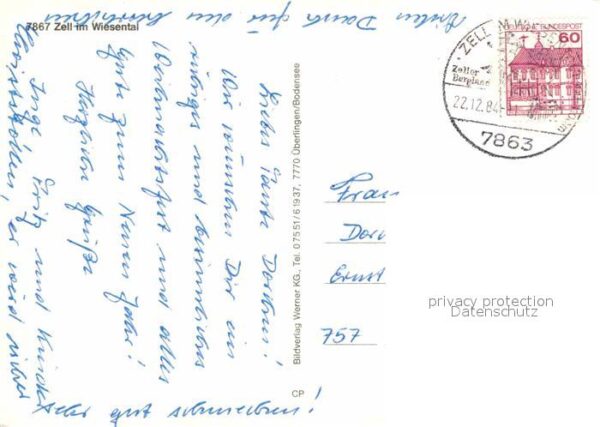 7867 Zell im Wiesental
Liebe Tante Dorchen!
Wir wünschen Dir ein
ruhiges und besinnliches
Weihnachtsfest und alles
Gute zum Neuen Jahr!
Herzliche Grüße
Inge, Fritz und Kinder
Vielen Dank für den herrlichen
Christstollen, er wird sicher
sehr gut schmecken!
Bildverlag Werner KG., Tel. 0 75 51/6 19 37, 7770 Überlingen/Bodensee
CP
Frau
Dor
Ernst
757
DEUTSCHE BUNDESPOST
60
ZELL
Zeller
Bergland
22.12.84
7863
privacy protection
Datenschutz